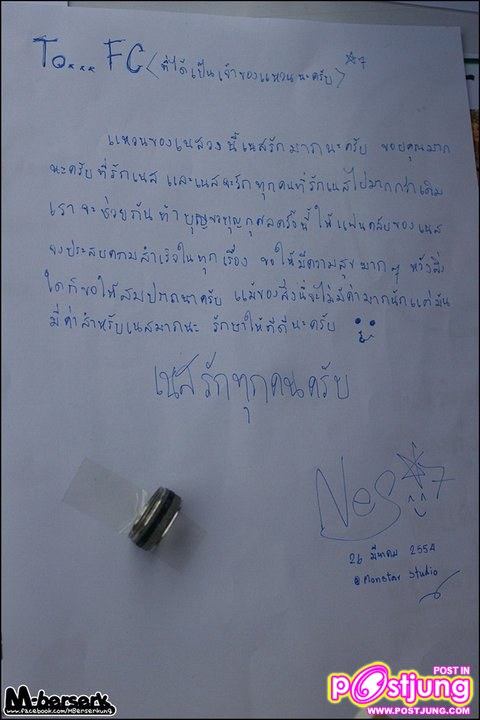 To... FC (ที่ได้เป็นเจ้าของแหวนนะครับ) ☆7
แหวนของเนสวงนี้เนสรักมากนะครับ ขอบคุณมาก
นะครับที่รักเนส และเนสจะรักทุกคนที่รักเนสไปมากกว่าเดิม
เราจะช่วยกันทำบุญ กุศลครั้งนี้ให้แฟนคลับของเนส
จงประสบความสำเร็จในทุกเรื่อง ขอให้มีความสุขมากๆ หวังสิ่ง
ใดก็ขอให้สมปรารถนาครับ แม้ของสิ่งนี้จะไม่มีค่ามากนักแต่มัน
มีค่าสำหรับเนสมากนะ รักษาให้ดีดีนะครับ
เนสรักทุกคนครับ
Nes☆7
26 มีนาคม 2554
@Monstar Studio
M-berserk
www.facebook.com/MBerserkung
POST IN
postjung
WWW.POSTJUNG.COM